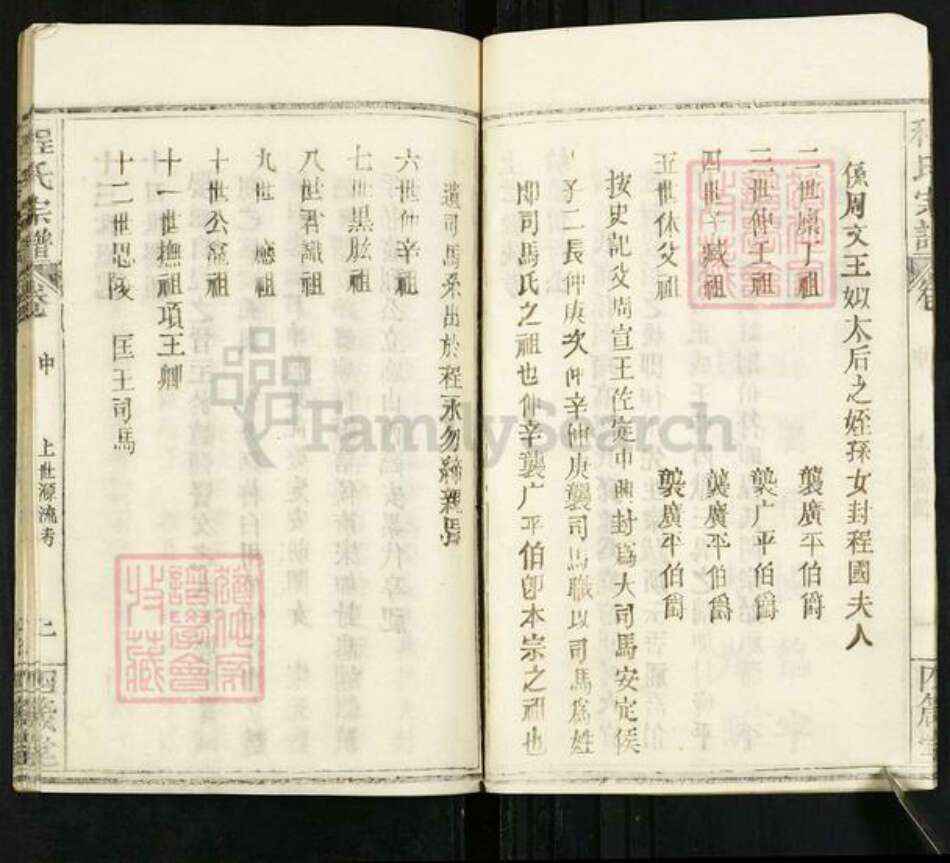 係周文王姒太后之姪孫女封程國夫人
二世槺丁祖 襲廣平伯爵
三世仲壬祖 襲广平伯爵
四世辛臧祖 襲廣平伯爵
五世休父祖 襲廣平伯爵
按史記父周宣王佐定中興封為大司馬安定侯
子二長仲庚次仲辛仲庚襲司馬職以司馬為姓
即司馬氏之祖也仲辛襲广平伯卽本宗之祖也
遺司馬系出於程永勿締親焉
六世仲辛祖
七世黑肱祖
八世君識祖
九世 祖
十世公 祖
十一世撫祖 項王卿
十二世思陵 匡王司馬
程氏宗譜
卷 中
上世源流考
四箴堂
程氏宗譜 卷
四箴堂
譜學會
收藏
FamilySearch